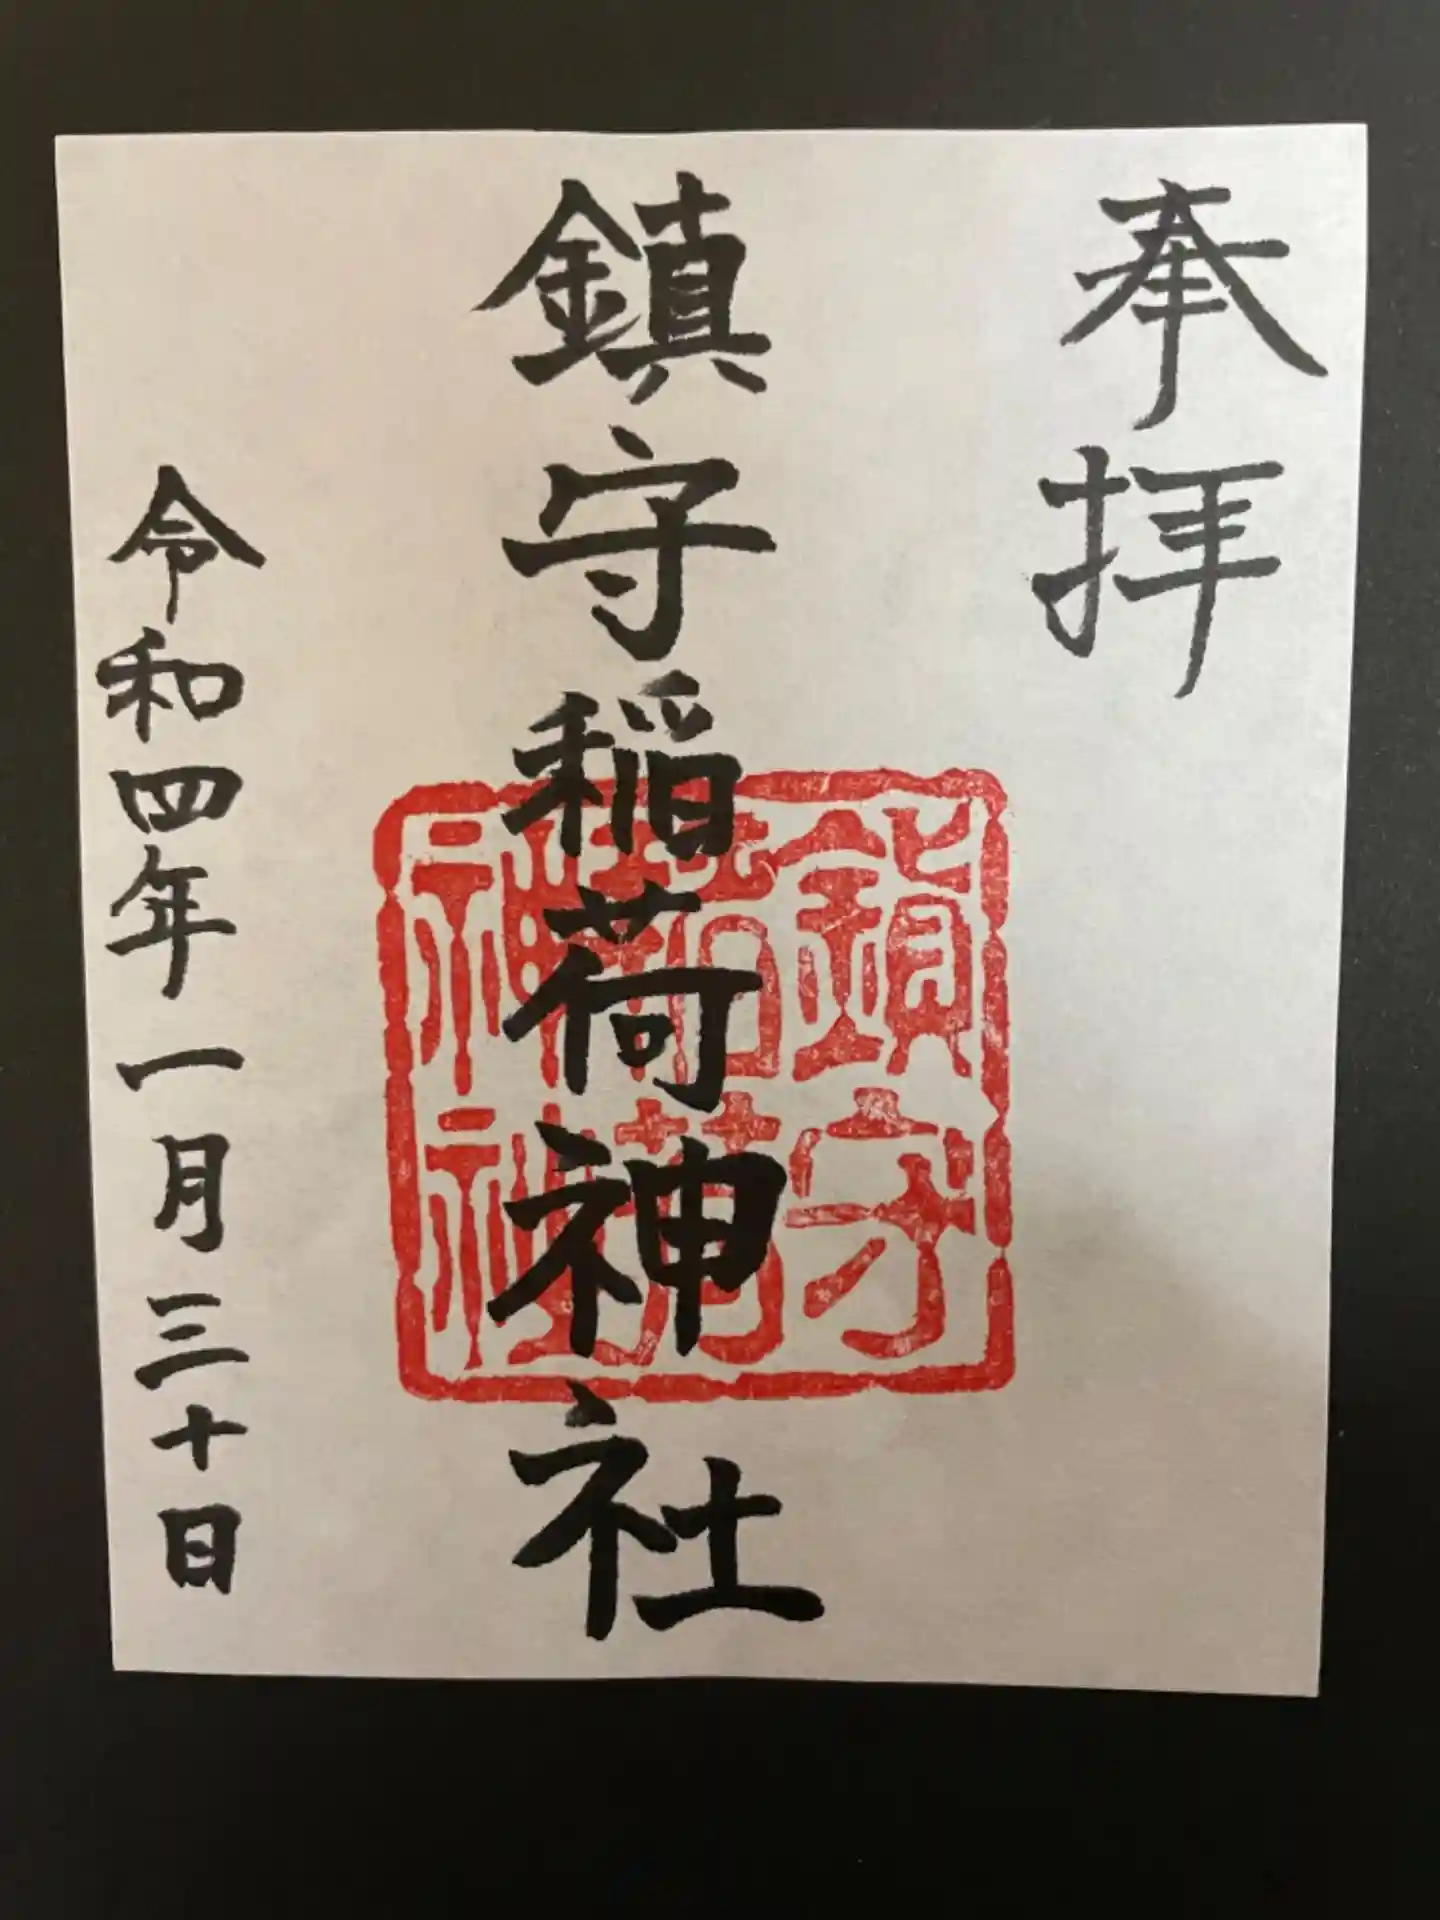 奉拝
鎮守稲荷神社
鎮守
稲荷
神社
令和四年一月三十日